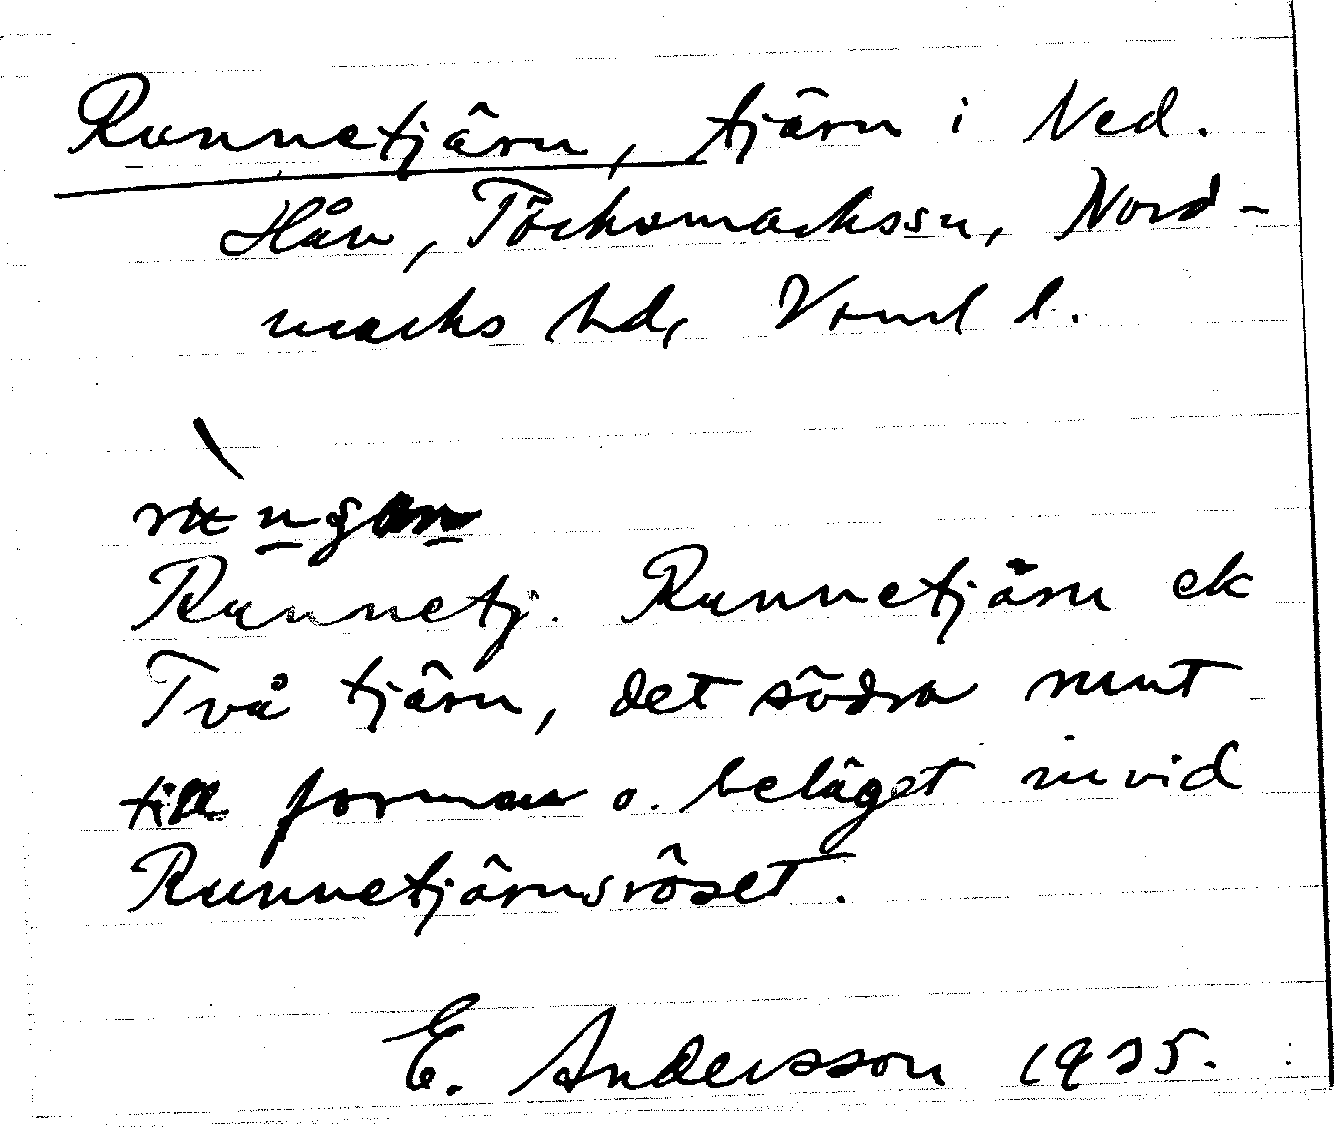 Runnetjärn, tjärn i Ned.
Hån, Töcksmarkssn, Nord-
marks hd, Vrml l.
Runnetj. Runnetjärn ek
Två tjärn, det södra runt
till formen o. beläget invid
Runnetjärnsröset.
E. Andersson 1935.